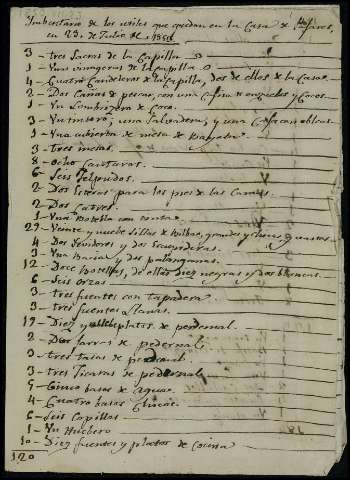 Inbentario de los utiles que quedan en la Casa de
en 23. de Julio de 1850
3 - tres Sacras de la Capilla
1 - Una vinagera de la Capilla
4 - Cuatro Candeleros de la Capilla, dos de ellos de la Casa
2 - Dos Cañas de pescar, con una Caña de anzuelos y Cocos.
1 - Un
3 - Un tintero, una Salvadera, y una
1 - Una cubierta de mesa de Bayeta
3 - Tres mesas.
8 - Ocho Canturas.
6 - Seis Felpudos.
2 - Dos Esteras para los pies de las Camas.
2 - Dos Catres.
1 - Una Botella con
29 - Veinte y nuebe Sillas de Bilbao, grandes y chicas y
4 - Dos Tenedores y dos
3 - Una Bacia y dos palanganas.
12 - Doce Botellas, de ellas diez negras y dos blancas.
6 - Seis orzas
3 - tres fuentes con tapadera
3 - tres fuentes llanas.
19 - Diez y nuebe platos de pedernal.
2 - Dos Jarras de pedernal.
3 - tres tasas de pedernal
3 - tres Jicaras de pedernal
5 - Cinco basos de aguas
4 - Cuatro basos chicos.
6 - Seis Copillas
1 - Un Huebero
10 - Diez fuentes y platos de Cocina
120